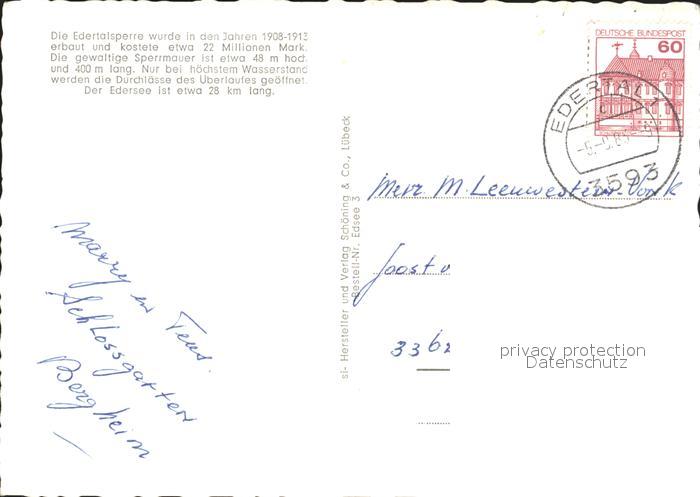 Die Edertalsperre wurde in den Jahren 1908-1913
erbaut und kostete etwa 22 Millionen Mark.
Die gewaltige Sperrmauer ist etwa 48 m hoch
und 400 m lang. Nur bei höchstem Wasserstand
werden die Durchlässe des Überlaufes geöffnet.
Der Edersee ist etwa 28 km lang.
DEUTSCHE BUNDESPOST
60
EDERTAL 1
3593
si- Hersteller und Verlag Schöning & Co., Lübeck
Bestell-Nr. Edsee 3
Mevr. M. Leeuwestein-Vonk
Joost v
3362
privacy protection
Datenschutz
Marry en Teus.
Schlossgarten
Bergheim